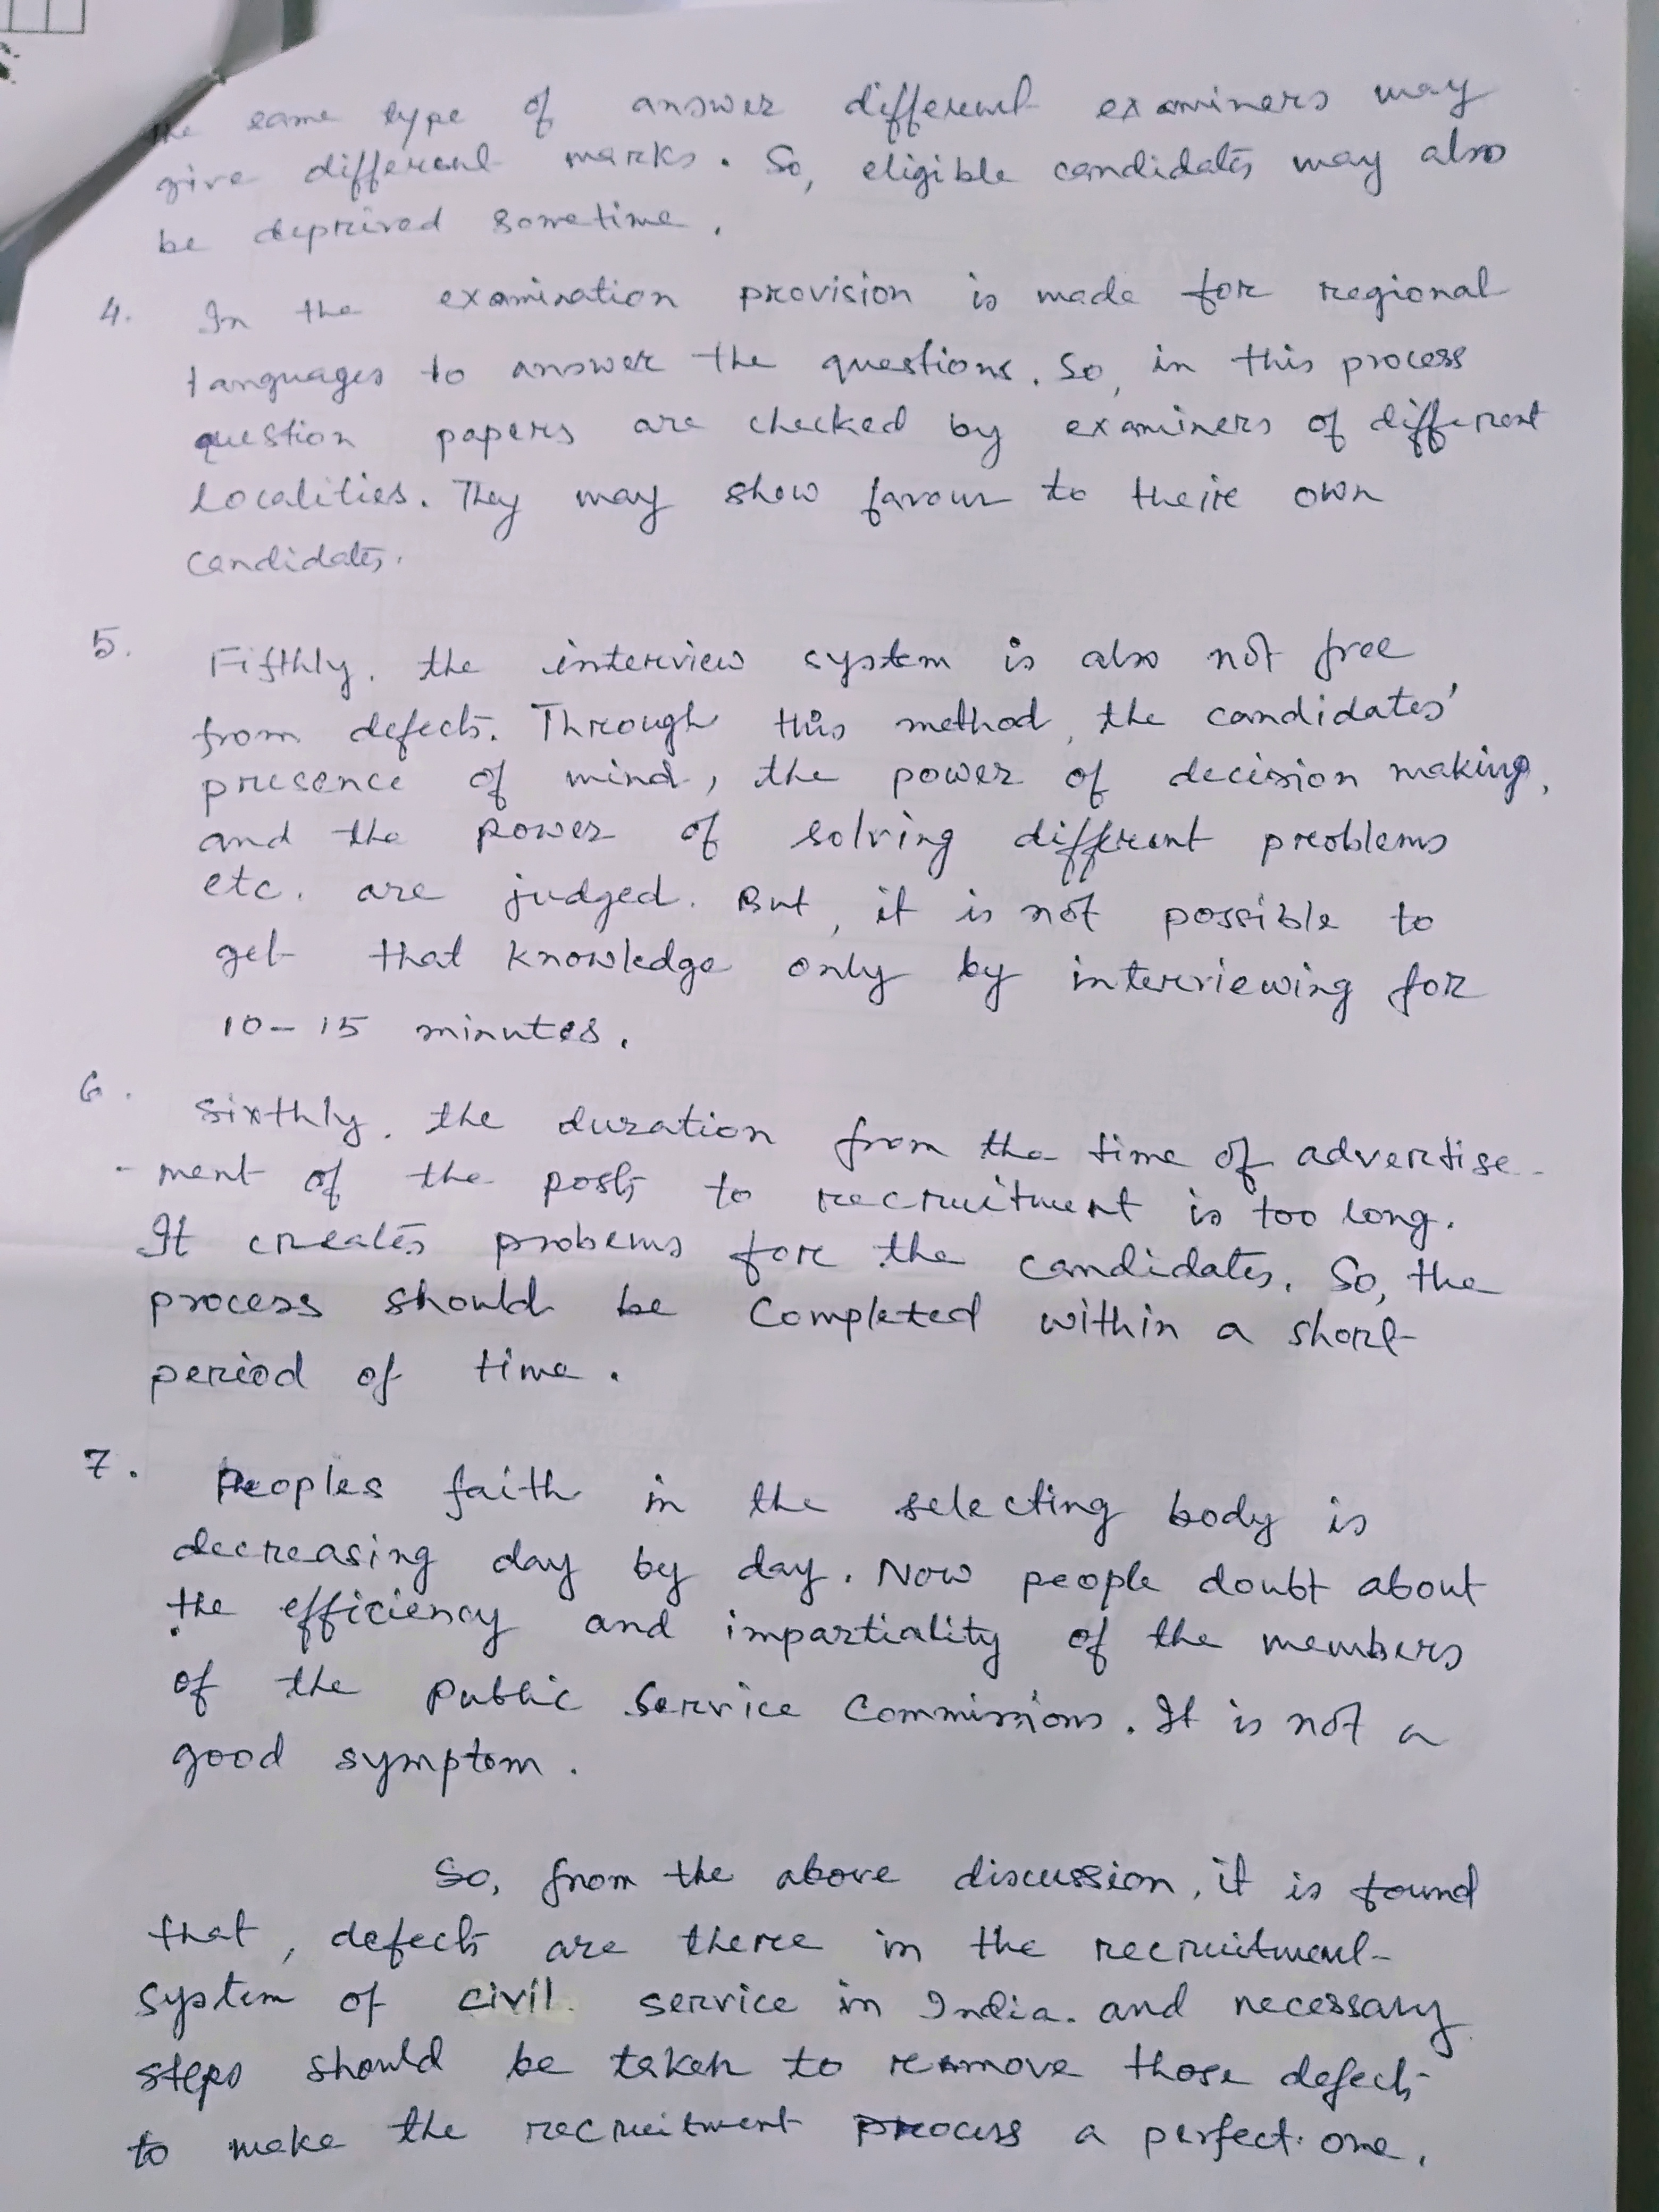 the same type of answer different examiners may
give different marks. So, eligible candidates may also
be deprived sometime.
4. In the examination provision is made for regional
languages to answer the questions. So, in this process
question papers are checked by examiners of different
localities. They may show favour to their own
candidates.
5. Fifthly, the interview system is also not free
from defects. Through this method, the candidates'
presence of mind, the power of decision making,
and the power of solving different problems
etc. are judged. But, it is not possible to
get that knowledge only by interviewing for
10-15 minutes.
6. Sixthly, the duration from the time of advertise-
-ment of the posts to recruitment is too long.
It creates probems for the candidates. So, the
process should be completed within a short
period of time.
7. Peoples faith in the selecting body is
decreasing day by day. Now people doubt about
the efficiency and impartiality of the members
of the Public Service Commissions. It is not a
good symptom.
So, from the above discussion, it is found
that, defects are there in the recruitment
system of civil service in India. and necessary
steps should be taken to remove those defects
to make the recruitment process a perfect one.